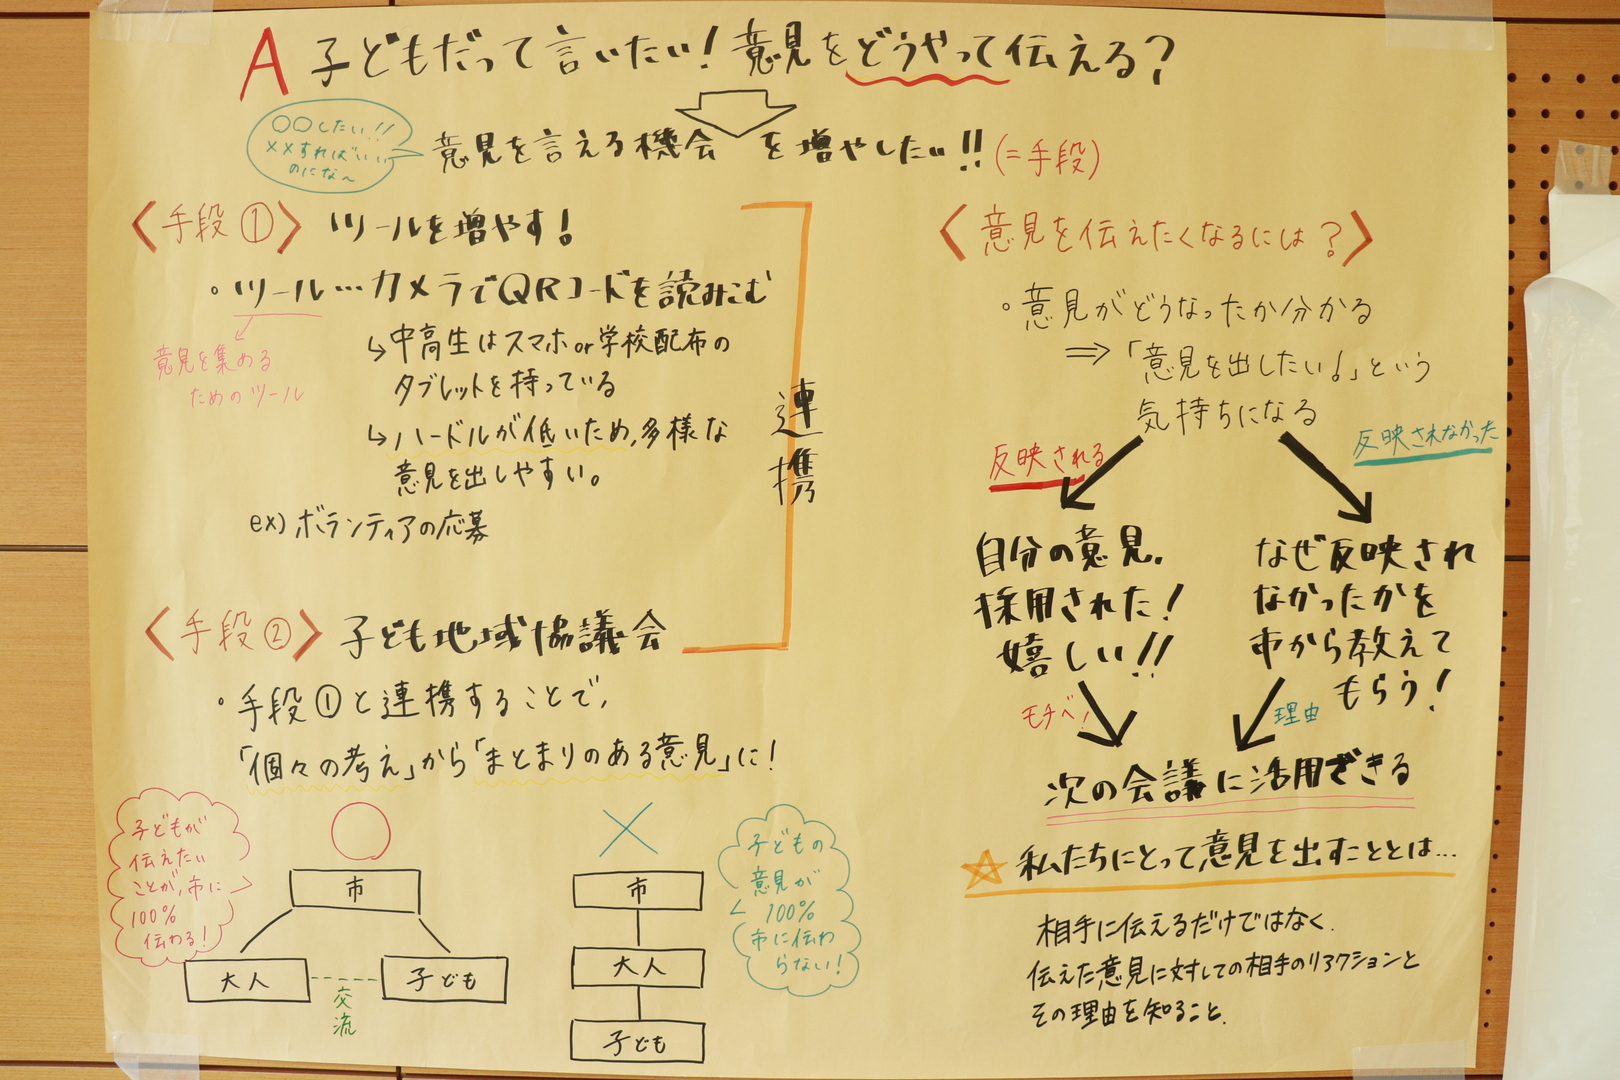 A 子どもだって言いたい！意見をどうやって伝える？
〇〇したい!!
××すればいい
のにな〜
意見を言える機会 を増やしたい!! (=手段)
〈手段①〉 ツールを増やす！
・ツール…カメラでQRコードを読みこむ
意見を集める
ためのツール
↳中高生はスマホor学校配布の
タブレットを持っている
↳ハードルが低いため,多様な
意見を出しやすい。
ex) ボランティアの応募
連携
〈手段②〉 子ども地域協議会
・手段①と連携することで,
「個々の考え」から「まとまりのある意見」に！
子どもが
伝えたい
ことが,市に
100%
伝わる！
市
大人
子ども
交流
×
市
大人
子ども
子どもの
意見が
100%
市に伝わ
らない！
〈意見を伝えたくなるには？〉
・意見がどうなったか分かる
⇒「意見を出したい！」という
気持ちになる
反映される
反映されなかった
自分の意見,
採用された！
嬉しい!!
なぜ反映され
なかったかを
市から教えて
もらう！
モチベ！
理由
次の会議に活用できる
☆私たちにとって意見を出すこととは…
相手に伝えるだけではなく,
伝えた意見に対しての相手のリアクションと
その理由を知ること.